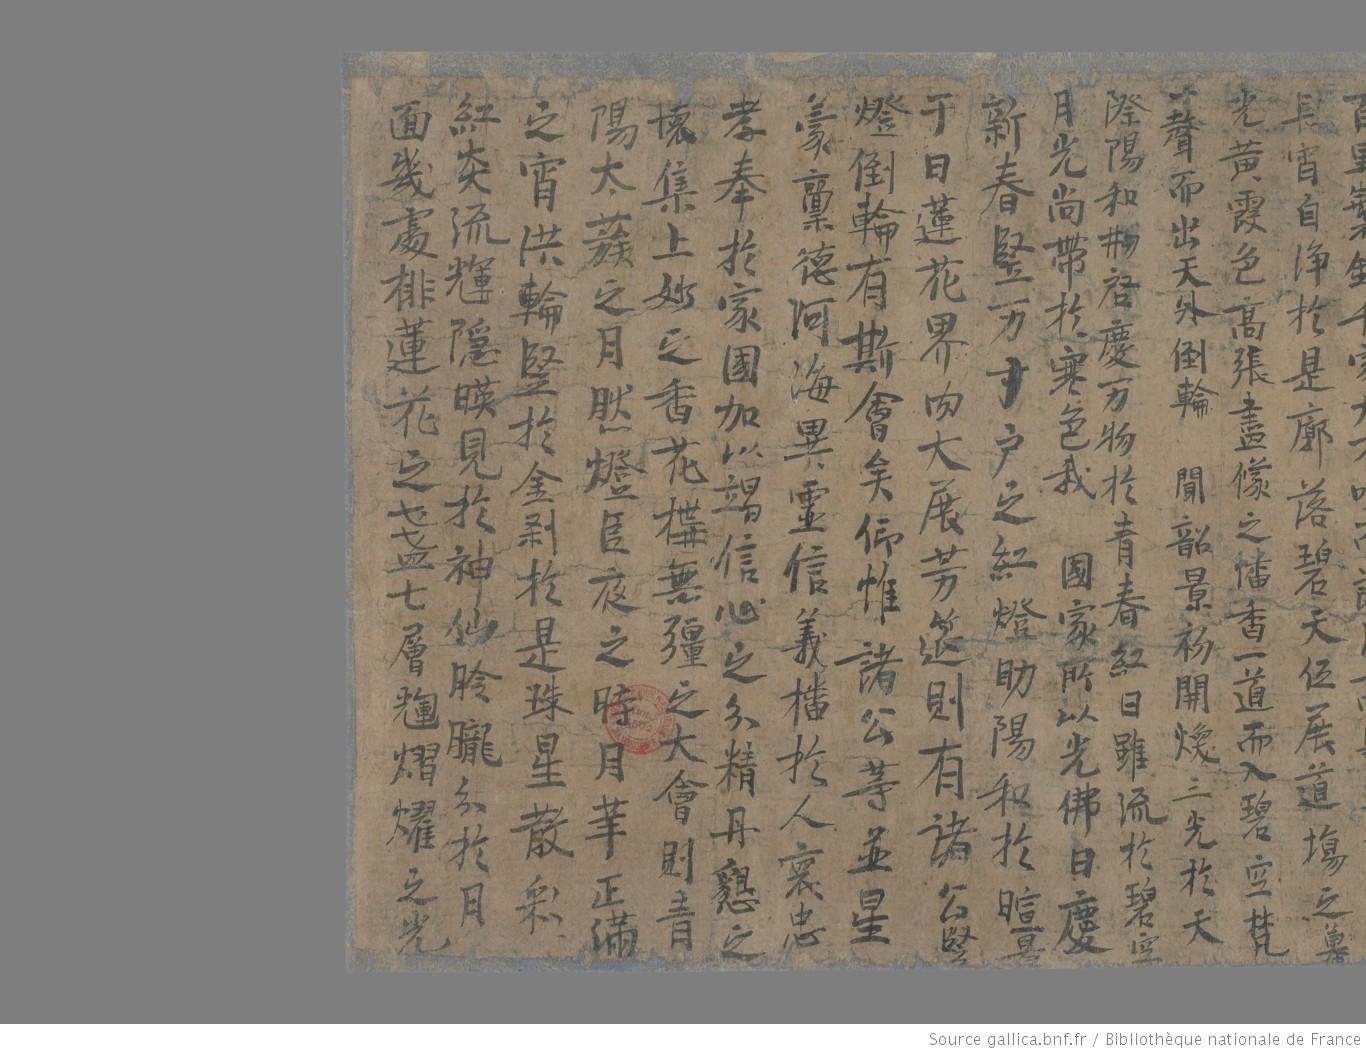 長宵自淨於是廓落碧天伍展道場之
光黃霞色高張畫㡧之幡香一道而入碧空梵
聲而出天外倒輪 聞韶景初開煥三光於天
際陽和啓慶万物於青春紅日雖流於碧空
月光尚帶於寒色我 國家所以光佛日慶
新春竪万户之紅燈助陽和於暄景
于日蓮花界內大展芳筵則有諸公竪
燈倒輪有斯會矣仰惟諸公等並星
稟德河海異靈信義於人寰忠
孝奉於家國加以竭信心之分精丹懇之
懷集上妙之香花搆無疆之大會則青
陽太蔟之月然燈臣夜之時月華正滿
之宵洪輪竪於金剎於是珠星散彩
紅炎流輝隱暎見於神仙朎朧分於月
面幾處排蓮花之七盞七層輝熠耀之光
Source gallica.bnf.fr / Bibliothèque nationale de France